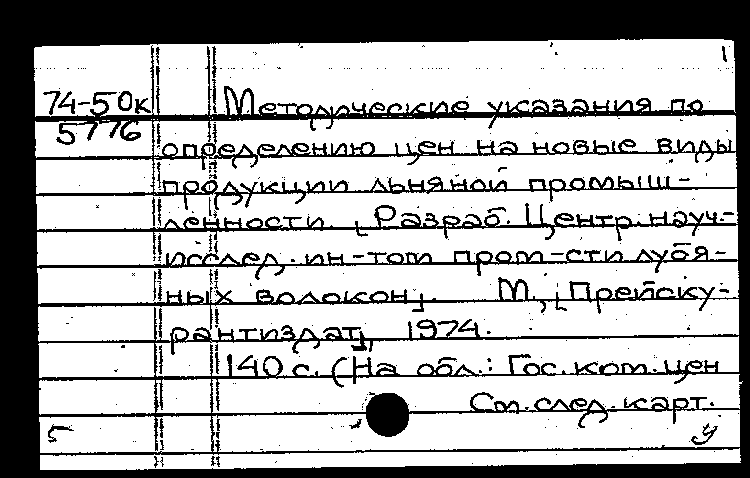 1
74-50к Методические указания по
5776
определению цен на новые виды
продукции льняной промыш-
ленности. [Разраб. Центр. науч.-
исслед. ин-том пром-сти лубя-
ных волокон]. М., [Прейску-
рантиздат], 1974.
140 с. (На обл.: Гос. ком. цен
См. след. карт.
5 у